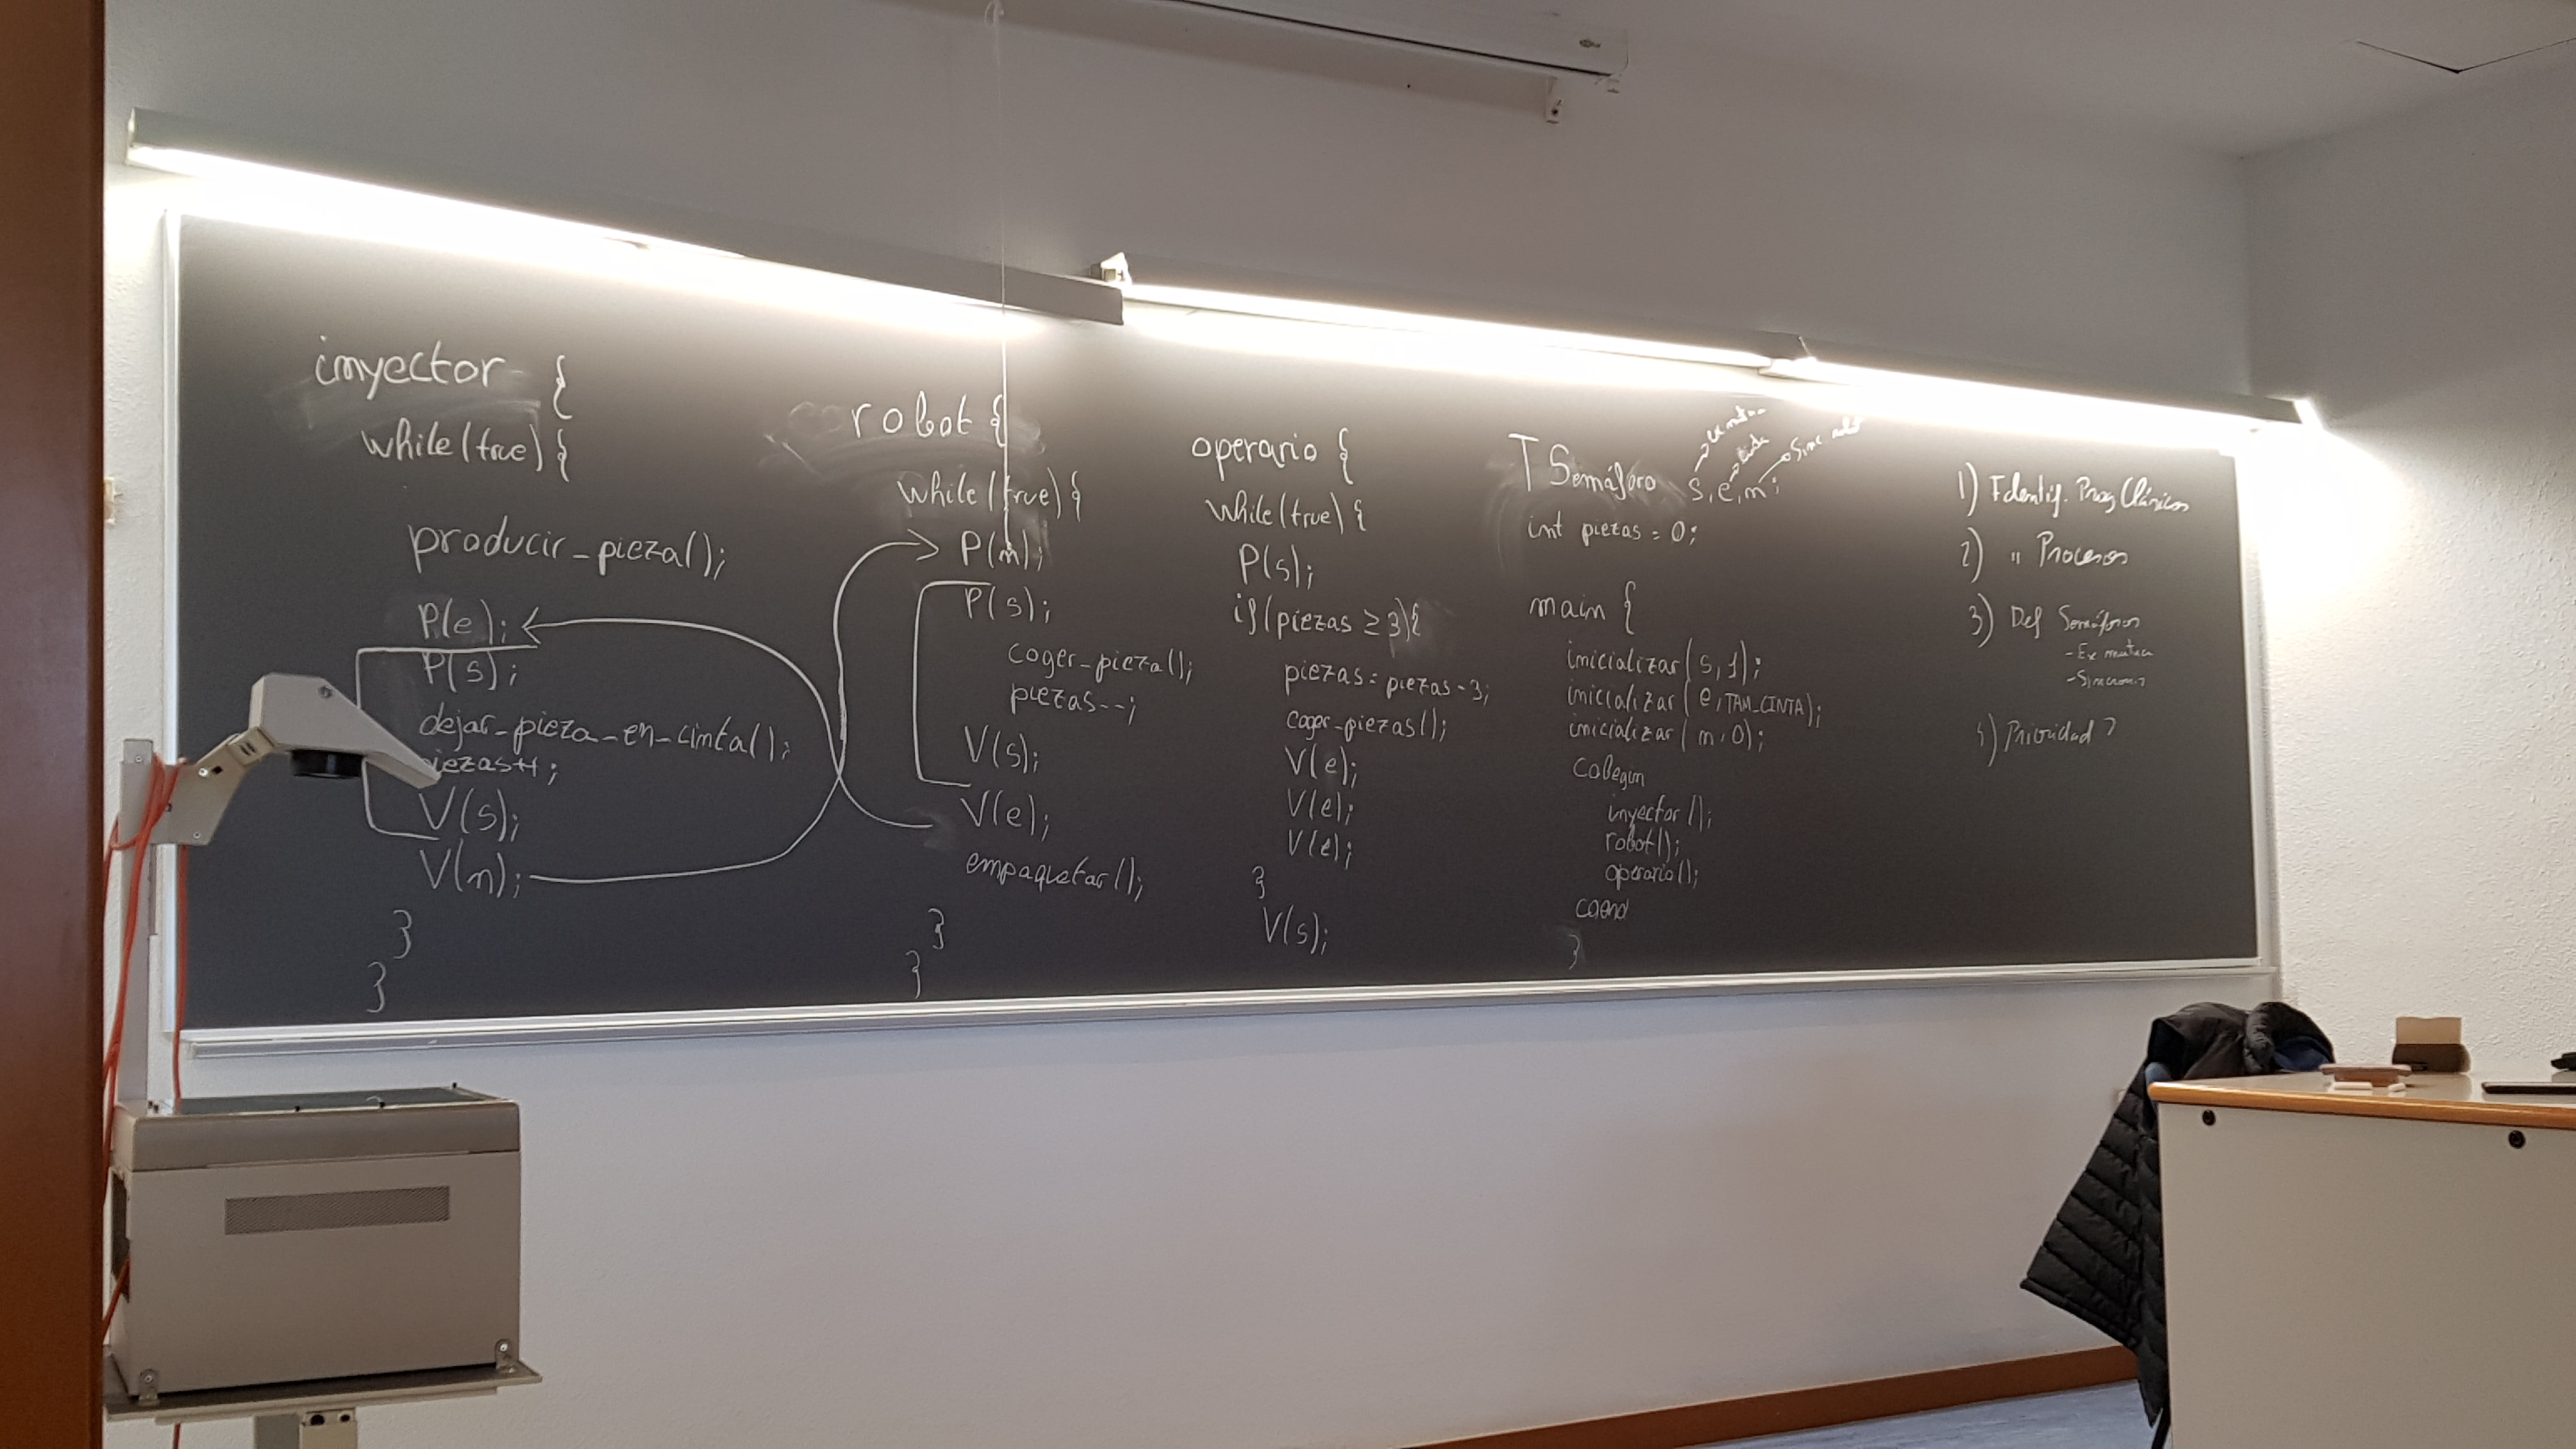 inyector {
while(true) {
producir_pieza();
P(e);
P(s);
dejar_pieza_en_cinta();
iezas++;
V(s);
V(n);
}
}
robot {
while(true) {
P(n);
P(s);
coger_pieza();
piezas--;
V(s);
V(e);
empaquetar();
}
}
operario {
while(true) {
P(s);
if(piezas ≥ 3){
piezas = piezas - 3;
coger_piezas();
V(e);
V(e);
V(e);
}
V(s);
TSemáforo s,e,n;
int piezas = 0;
main {
inicializar(s,1);
inicializar(e,TAM_CINTA);
inicializar(n,0);
cobegin
inyector();
robot();
operario();
coend
}
1) Identif. Prog Clásicos
2) " Procesos
3) Def Semáforos
- Ex mutua
- Sincroniz
4) Prioridad?